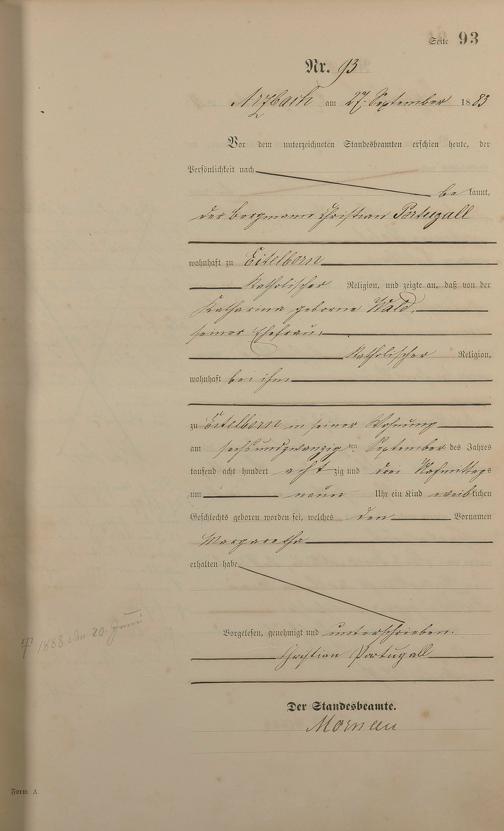 Seite 93
Nr. 93
Arzbach am 27. September 1883
Vor dem unterzeichneten Standesbeamten erschien heute, der
Persönlichkeit nach
be kannt,
der Bergmann Christian Portugall
wohnhaft zu Eitelborn
katholischer Religion, und zeigte an, daß von der
Katharina geborne Wald,
seiner Ehefrau,
katholischer Religion,
wohnhaft bei ihm
zu Eitelborn in seiner Wohnung
am sechsundzwanzigten September des Jahres
tausend acht hundert acht zig und drei Nachmittags
um neun Uhr ein Kind weiblichen
Geschlechts geboren worden sei, welches den Vornamen
Margaretha
erhalten habe
Vorgelesen, genehmigt und unterschrieben.
Christian Portugall
1888 den 20. Juni
Der Standesbeamte.
Form A